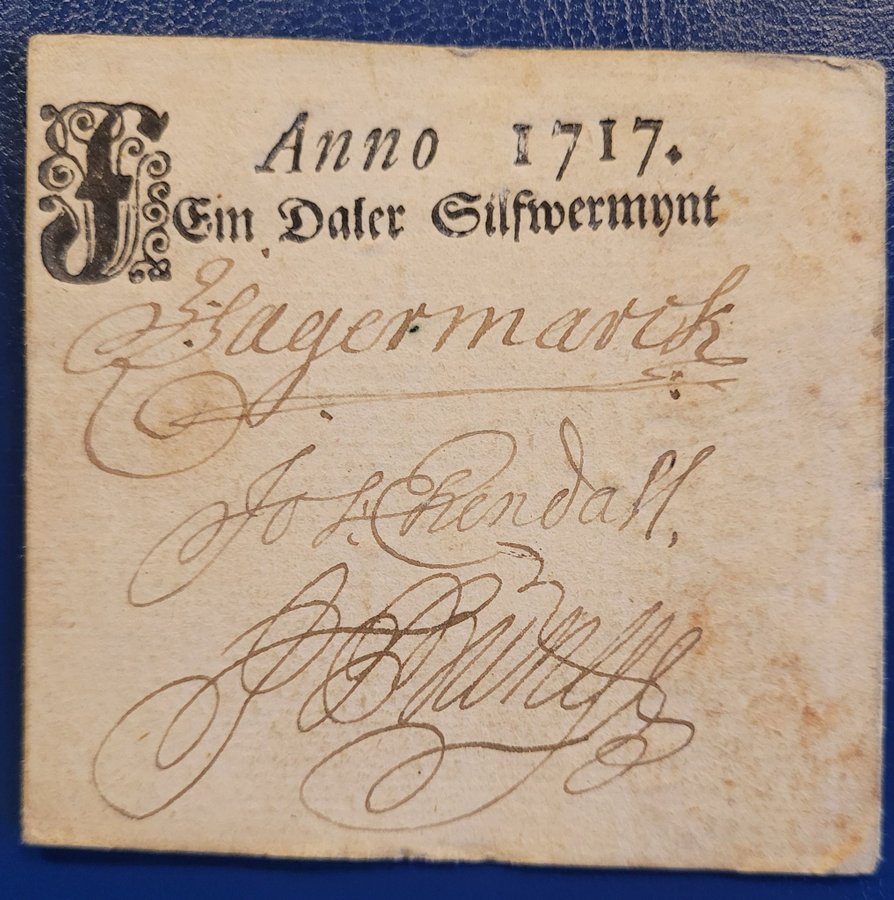 F
Anno 1717.
Ein Daler Silfwermynt
Hagermarck
Jos: Ekendall.